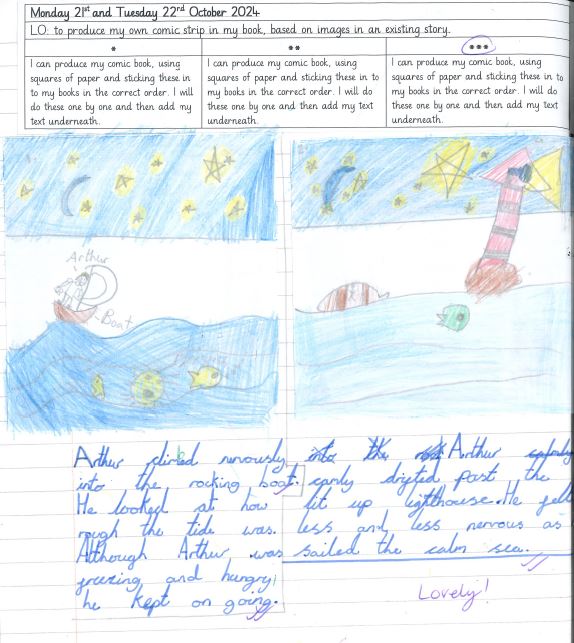 Monday 21st and Tuesday 22nd October 2024
LO: to produce my own comic strip in my book, based on images in an existing story.
*
I can produce my comic book, using
squares of paper and sticking these in
to my books in the correct order. I will
do these one by one and then add my
text underneath.
**
I can produce my comic book, using
squares of paper and sticking these in to
my books in the correct order. I will do
these one by one and then add my text
underneath.
***
I can produce my comic book, using
squares of paper and sticking these in to
my books in the correct order. I will do
these one by one and then add my text
underneath.
Arthur
Boat
Arthur climbed nervously
into the rocking boat.
He looked at how
rough the tide was.
Although Arthur was
freezing and hungry,
he kept on going.
into the Arthur
drifted past the
lit up lighthouse. He fell
less and less nervous as
sailed the calm sea.
Lovely!